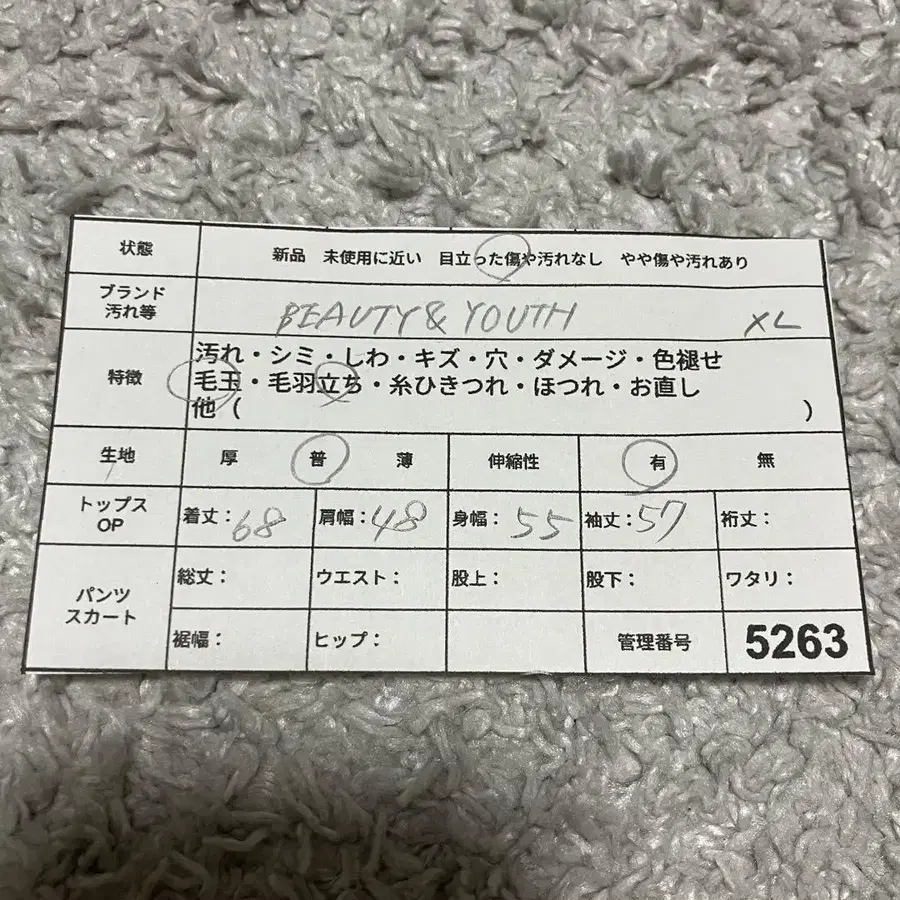 状態 新品 未使用に近い 目立った傷や汚れなし やや傷や汚れあり
ブランド
汚れ等
BEAUTY & YOUTH XL
特徴
汚れ・シミ・しわ・キズ・穴・ダメージ・色褪せ
毛玉・毛羽立ち・糸ひきつれ・ほつれ・お直し
他 ( )
生地 厚 普 薄 伸縮性 有 無
トップス
OP
着丈: 68 肩幅: 48 身幅: 55 袖丈: 57 裄丈:
パンツ
スカート
総丈: ウエスト: 股上: 股下: ワタリ:
裾幅: ヒップ: 管理番号 5263